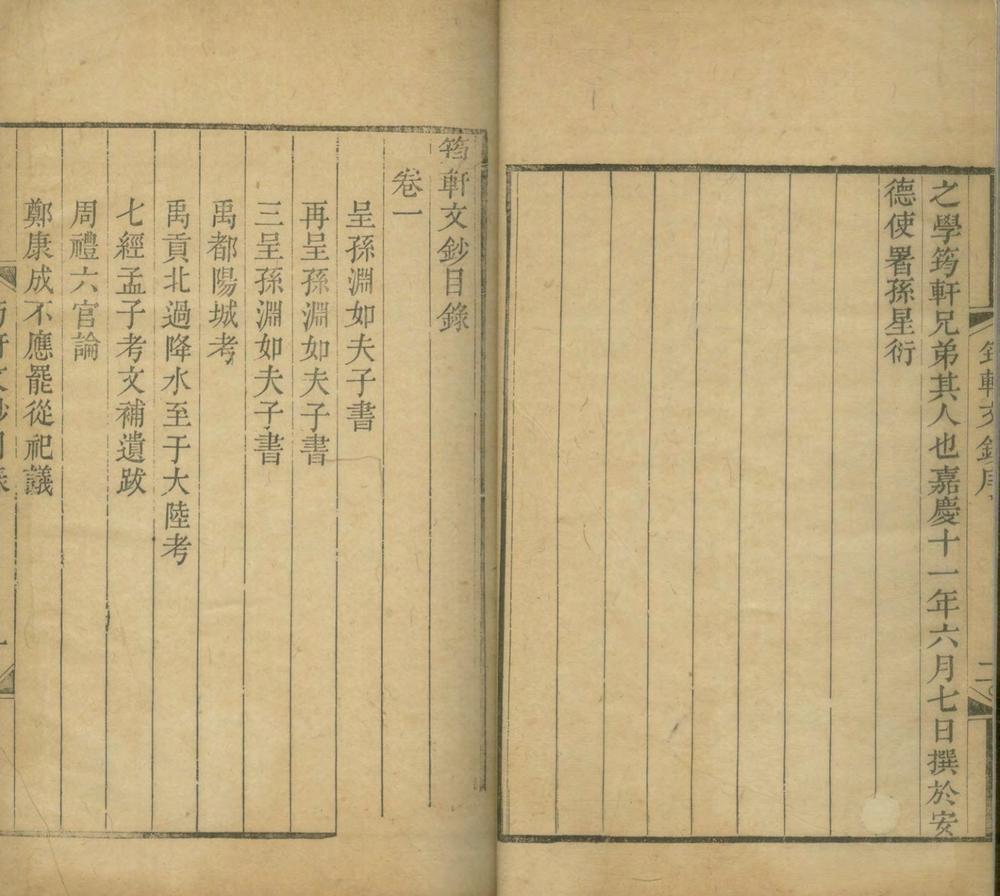 筠軒文鈔序
二
之學筠軒兄弟其人也嘉慶十一年六月七日撰於安
德使署孫星衍
筠軒文鈔目錄
卷一
呈孫淵如夫子書
再呈孫淵如夫子書
三呈孫淵如夫子書
禹都陽城考
禹貢北過降水至于大陸考
七經孟子考文補遺跋
周禮六官論
鄭康成不應罷從祀議